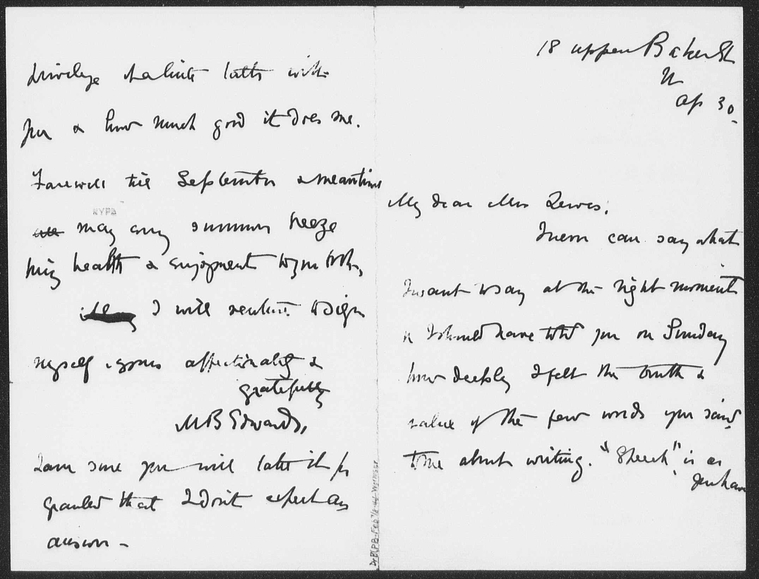 18 upper Baker St
W
Ap 30.
My dear Mrs Lewes,
I never can say what
I want to say at the right moment
or I should have told you on Sunday
how deeply I felt the truth &
value of the few words you said
to me about writing. " " is as
you have
privilege a little talk with
you & how much good it does me.
Farewell till September & meantime
may every summer breeze
bring health & enjoyment to you both,
I will venture to sign
myself yours affectionately &
gratefully
M B Edwards,
I am sure you will take it for
granted that I don't expect any
answer -
NYPL